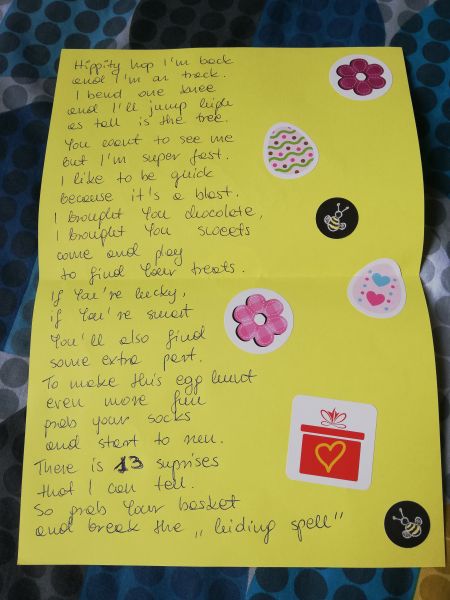 Hippity hop I'm back
and I'm on track.
I bend one knee
and I'll jump high
as tall is the tree.
You want to see me
but I'm super fast.
I like to be quick
because it's a blast.
I brought You chocolate,
I brought You sweets
come and play
to find Your treats.
If You're lucky,
if You're smart
You'll also find
some extra part.
To make this egg hunt
even more fun
grab your socks
and start to run.
There is 13 suprises
that I can tell.
So grab Your basket
and break the „hiding spell"